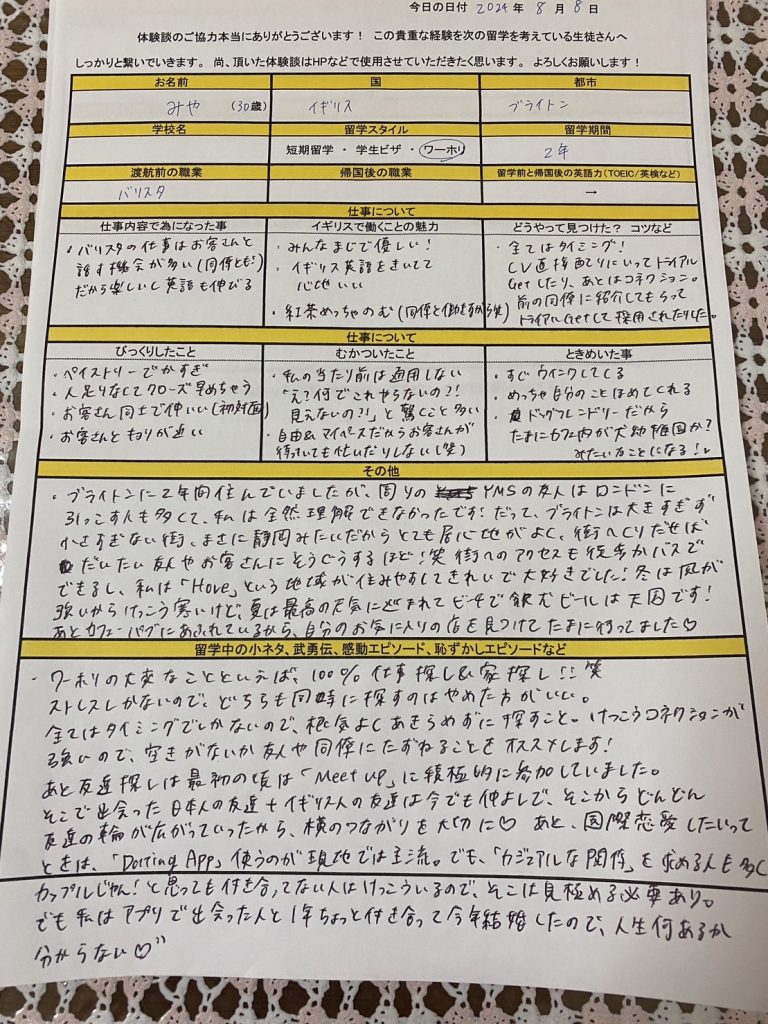 今日の日付 2024 年 8 月 8 日
体験談のご協力本当にありがとうございます！ この貴重な経験を次の留学を考えている生徒さんへ
しっかりと繋いでいきます。 尚、頂いた体験談はHPなどで使用させていただきたく思います。 よろしくお願いします！
お名前 国 都市
みや (30歳) イギリス ブライトン
学校名 留学スタイル 留学期間
短期留学 ・ 学生ビザ ・ ワーホリ 2年
渡航前の職業 帰国後の職業 留学前と帰国後の英語力（TOEIC/英検など）
バリスタ →
仕事について
仕事内容で為になった事
・バリスタの仕事はお客さんと
話す機会が多い(同僚とも!)
だから楽しいし英語も伸びる
イギリスで働くことの魅力
・みんなまじで優しい!
・イギリス英語をきいてて
心地いい
・紅茶めっちゃのむ(同僚と働きながら笑)
どうやって見つけた？ コツなど
・全てはタイミング!
CV直接配りにいってトライアル
Getしたり、あとはコネクション。
前の同僚に紹介してもらって
トライアルGetして採用されたりした。
仕事について
びっくりしたこと
・ペイストリーでかすぎ
・人足りなくてクローズ早めちゃう
・お客さん同士で仲いい(初対面)
・お客さんとのキョリが近い
むかついたこと
・私の当たり前は通用しない
「え?何でこれやらないの?!
見えないの?!」と驚くこと多い
・自由&マイペスだからお客さんが
待っていても忙いだりしない(笑)
ときめいた事
・すぐウインクしてくる
・めっちゃ自分のことほめてくれる
・ドッグフレンドリーだから
たまにカフェ内が犬幼稚園か?
みたいなことになる!
その他
・ブライトンに2年間住んでいましたが、周りの YMSの友人はロンドンに
引っこす人も多くて、私は全然理解できなかったです! だって、ブライトンは大きすぎず
小さすぎない街、まさに静岡みたいだからとても居心地がよく、街へくりだせば
だいたい友人やお客さんにそうぐうするほど!笑 街へのアクセスも徒歩かバスで
できるし、私は「Hove」という地域が住みやすくてきれいで大好きでした! 冬は風が
強いからけっこう寒いけど、夏は最高の天気に恵まれてビーチで飲むビールは天国です!
あとカフェ・パブにあふれているから、自分のお気に入りの店を見つけてたまに行ってました♡
留学中の小ネタ、武勇伝、感動エピソード、恥ずかしエピソードなど
・ワーホリの大変なことといえば、100%仕事探し&家探し!! 笑
ストレスしかないので、どちらも同時に探すのはやめた方がいい。
全てはタイミングでしかないので、根気よくあきらめずに探すこと。けっこうコネクションが
強いので、空きがないか友人や同僚にたずねることをオススメします!
あと友達探しは最初の頃は「Meet up」に積極的に参加していました。
そこで出会った日本人の友達+イギリス人の友達は今でも仲よしで、そこからどんどん
友達の輪が広がっていったから、横のつながりを大切に♡ あと、国際恋愛したいって
ときは、「Dating App」使うのが現地では主流。でも、「カジュアルな関係」を求める人も多く
カップルじゃん!と思っても付き合ってない人はけっこういるので、そこは見極める必要あり。
でも私はアプリで出会った人と1年ちょっと付き合って今年結婚したので、人生何あるか
分からない♡